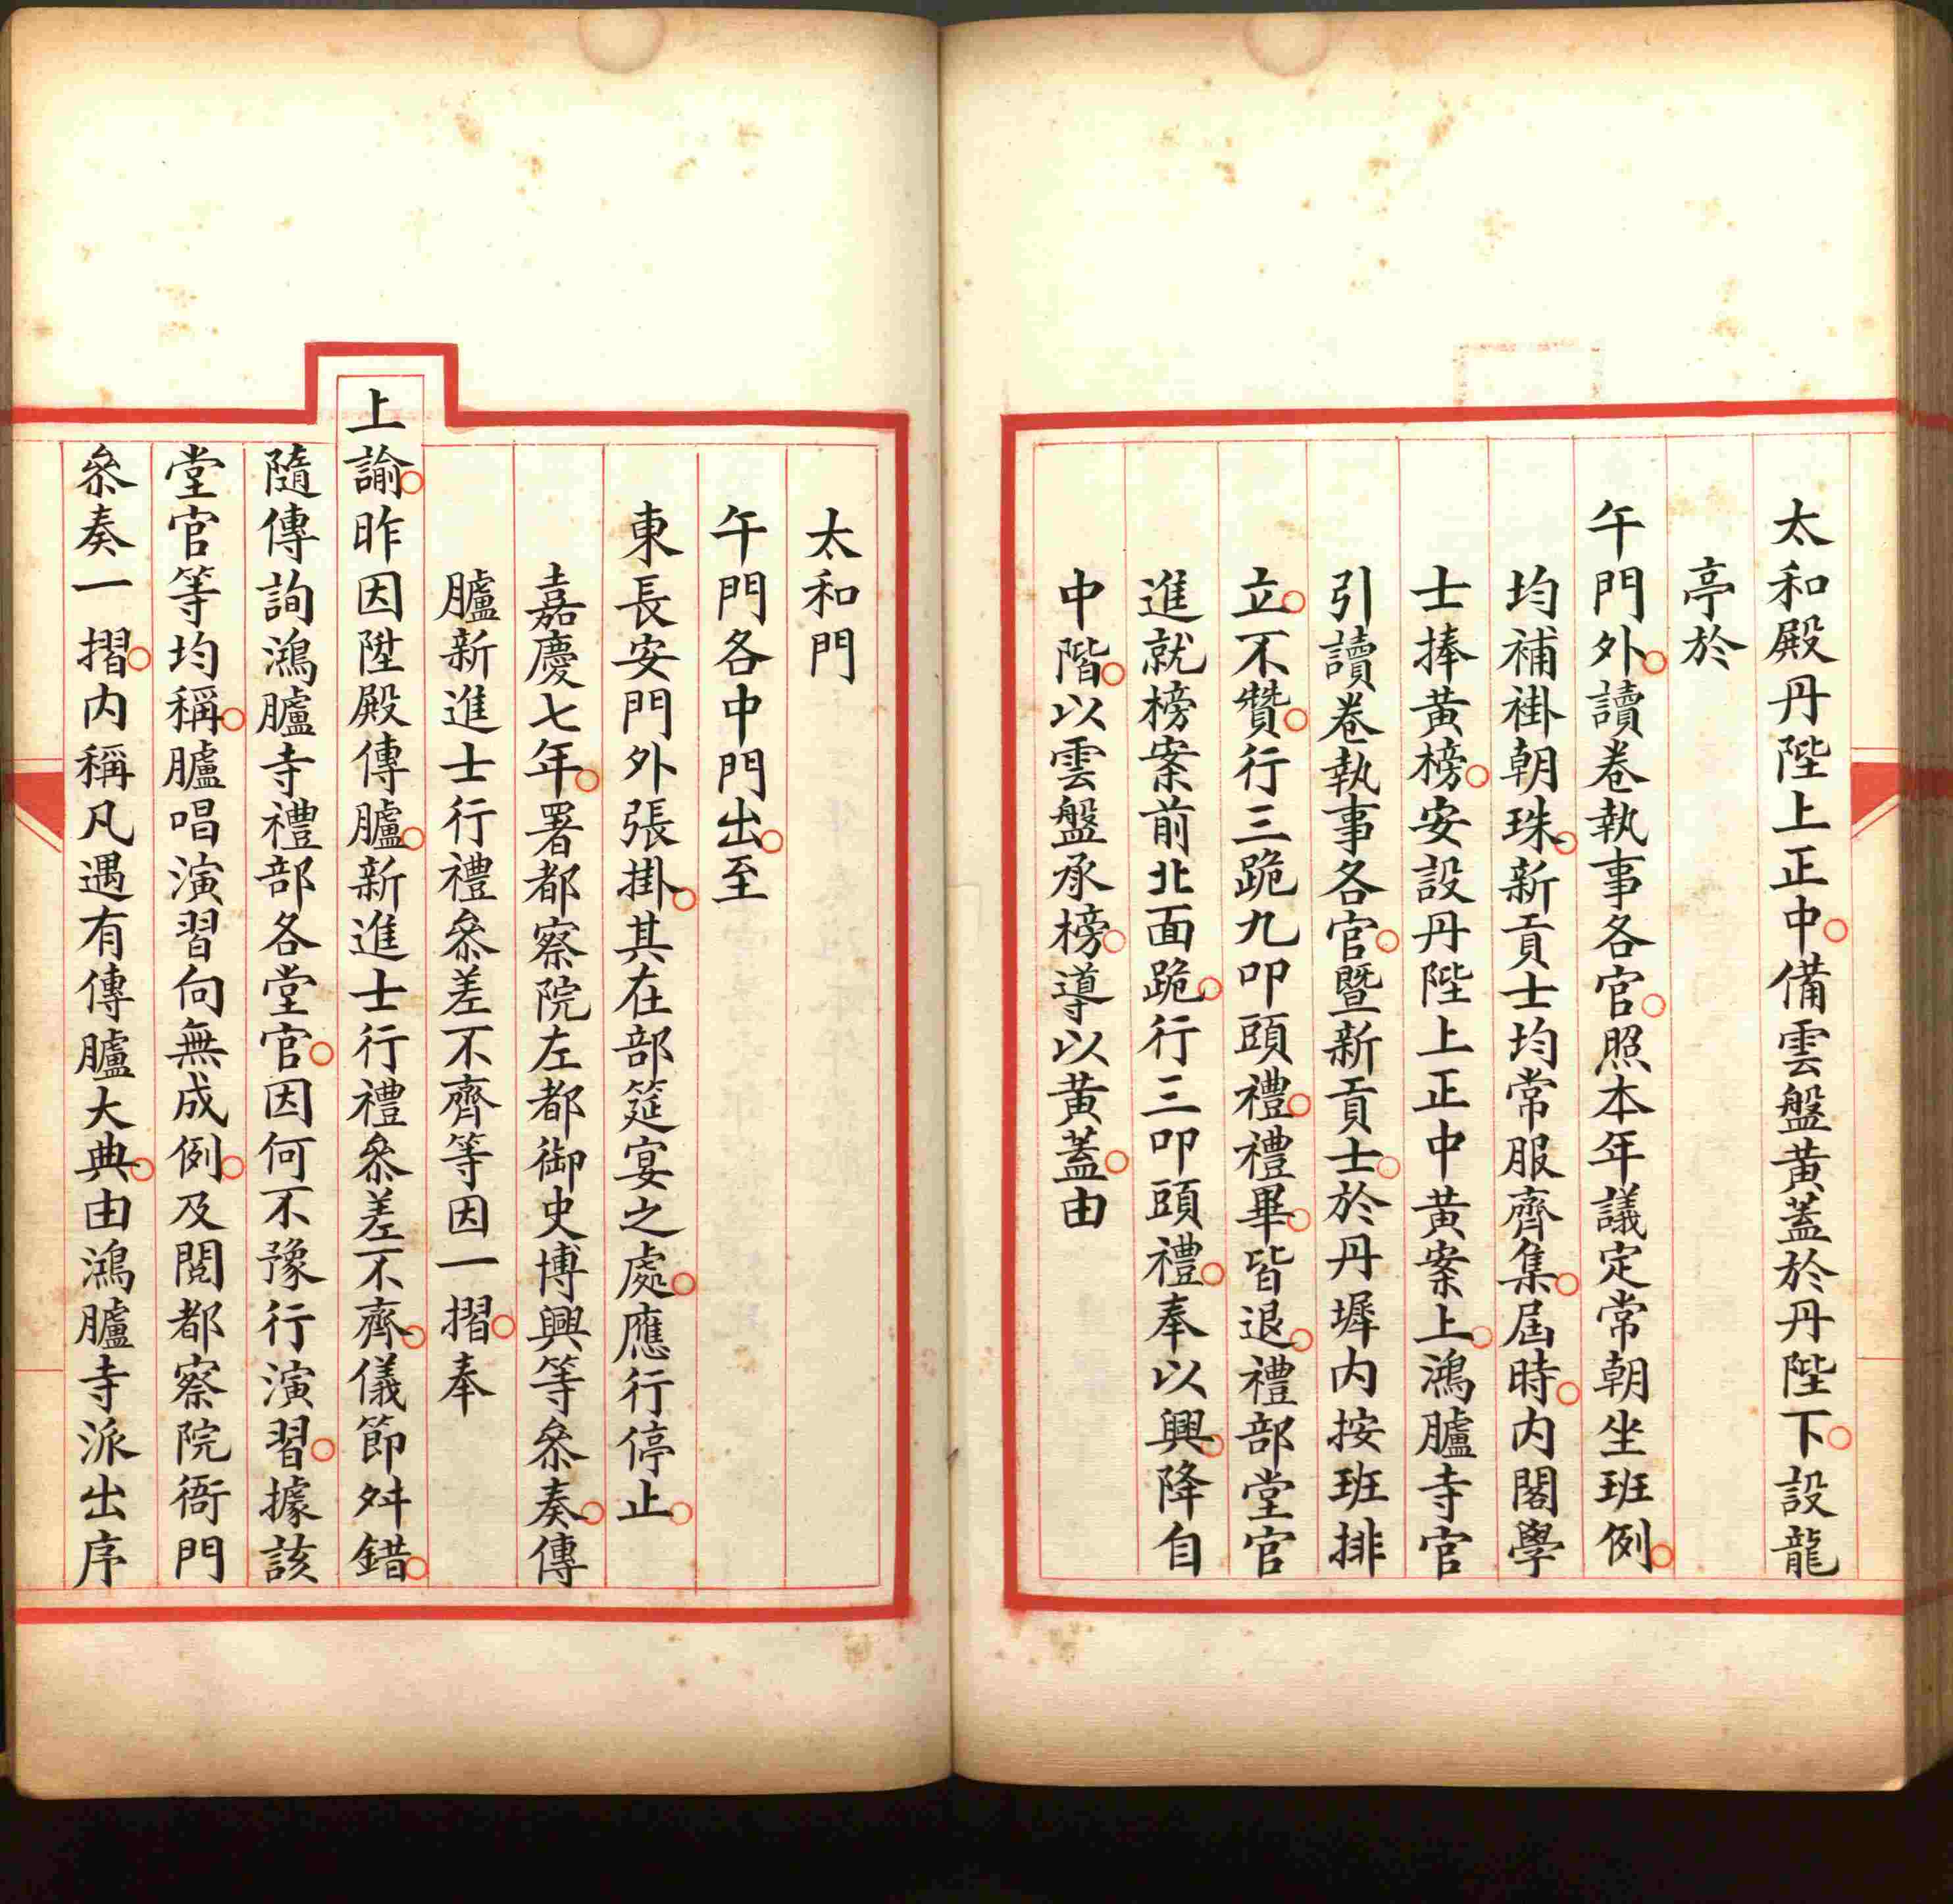 太和殿丹陛上正中○備雲盤黃蓋於丹陛下○設龍
亭於
午門外○讀卷執事各官○照本年議定常朝坐班例○
均補褂朝珠○新貢士均常服齊集○屆時○内閣學
士捧黃榜○安設丹陛上正中黃案上○鴻臚寺官
引讀卷執事各官○暨新貢士○於丹墀内按班排
立○不贊○行三跪九叩頭禮○禮畢○皆退○禮部堂官
進就榜案前北面跪○行三叩頭禮○奉以興○降自
中階○以雲盤承榜○導以黃蓋○由
太和門
午門各中門出○至
東長安門外張掛○其在部筵宴之處○應行停止○
嘉慶七年○署都察院左都御史博興等叅奏○傳
臚新進士行禮叅差不齊等因一摺○奉
上諭○昨因陞殿傳臚○新進士行禮叅差不齊○儀節舛錯○
隨傳詢鴻臚寺禮部各堂官○因何不豫行演習○據該
堂官等均稱○臚唱演習向無成例○及閱都察院衙門
叅奏一摺○内稱凡遇有傳臚大典○由鴻臚寺派出序